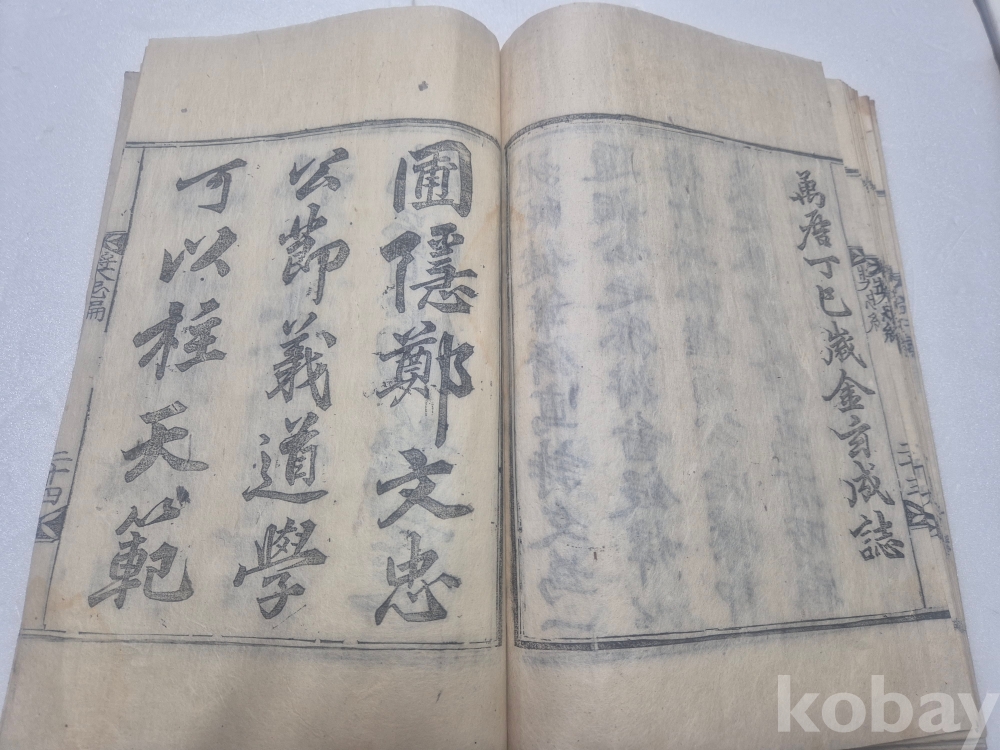 二十三
萬曆丁巳歲金玄成誌
圃隱鄭文忠
公節義道學
可以柱天範
二十四
kobay